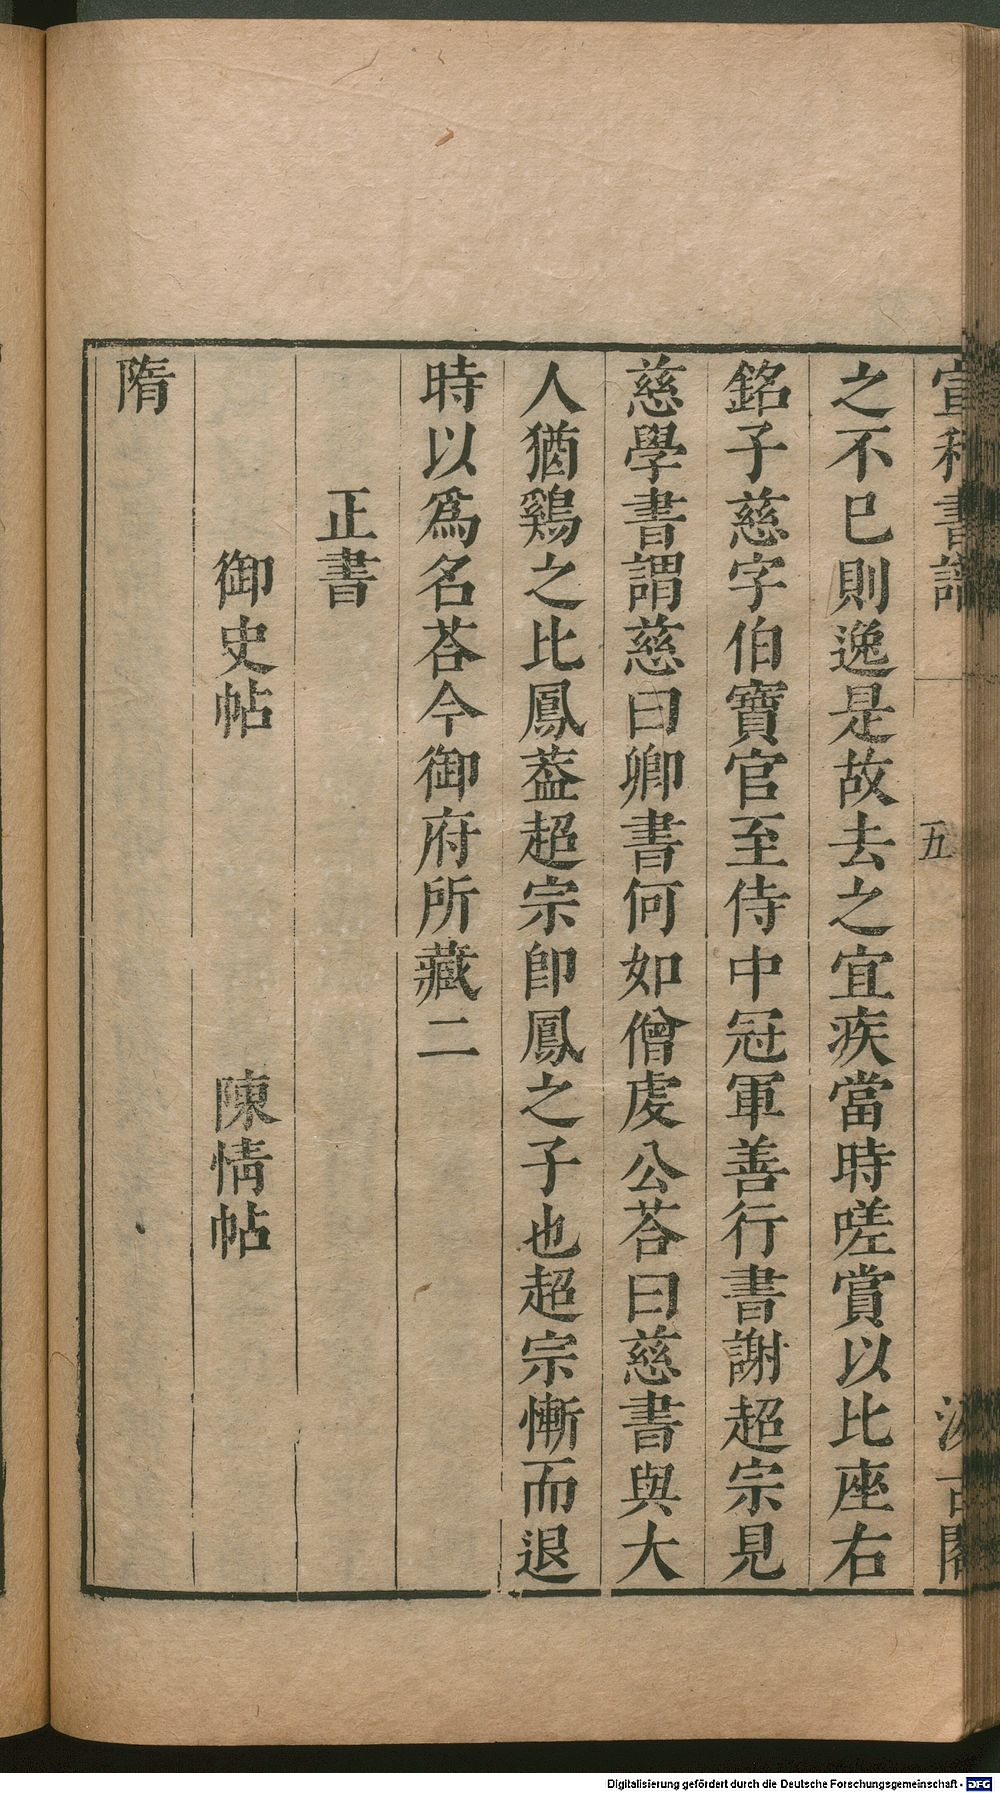 宣和書譜 五 汲古閣
之不已則逸是故去之宜疾當時嗟賞以比座右
銘子慈字伯寶官至侍中冠軍善行書謝超宗見
慈學書謂慈曰卿書何如僧虔公荅曰慈書與大
人猶鷄之比鳳葢超宗卽鳳之子也超宗慚而退
時以爲名荅今御府所藏二
正書
御史帖 陳情帖
隋
Digitalisierung gefördert durch die Deutsche Forschungsgemeinschaft - DFG